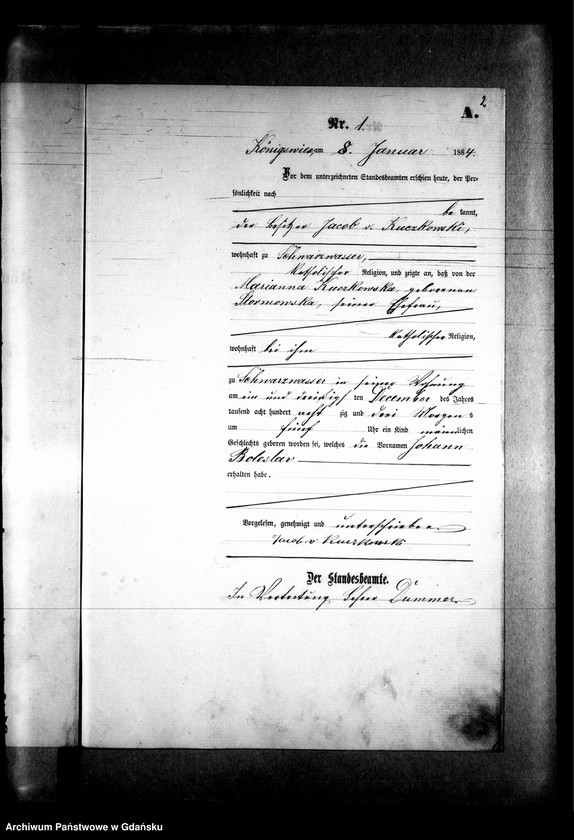 2
A.
Nr. 1.
am 8. Januar 1884.
Vor dem unterzeichneten Standesbeamten erschien heute, der Per-
sönlichkeit nach
be kannt,
der Besitzer Jacob v. Kuczkowski,
wohnhaft zu Schwarzwasser,
katholischer Religion, und zeigte an, daß von der
Marianna Kuczkowska, geborenen
seiner Ehefrau,
katholischer Religion,
wohnhaft bei ihm
zu Schwarzwasser in seiner Wohnung
am ein und dreißigsten December des Jahres
tausend acht hundert acht zig und drei Morgens
um fünf Uhr ein Kind männlichen
Geschlechts geboren worden sei, welches die Vornamen Johann
Boleslav
erhalten habe.
Vorgelesen, genehmigt und unterschrieben
Jacob v Kuczkowski
Der Standesbeamte.
In Vertretung
Archiwum Państwowe w Gdańsku